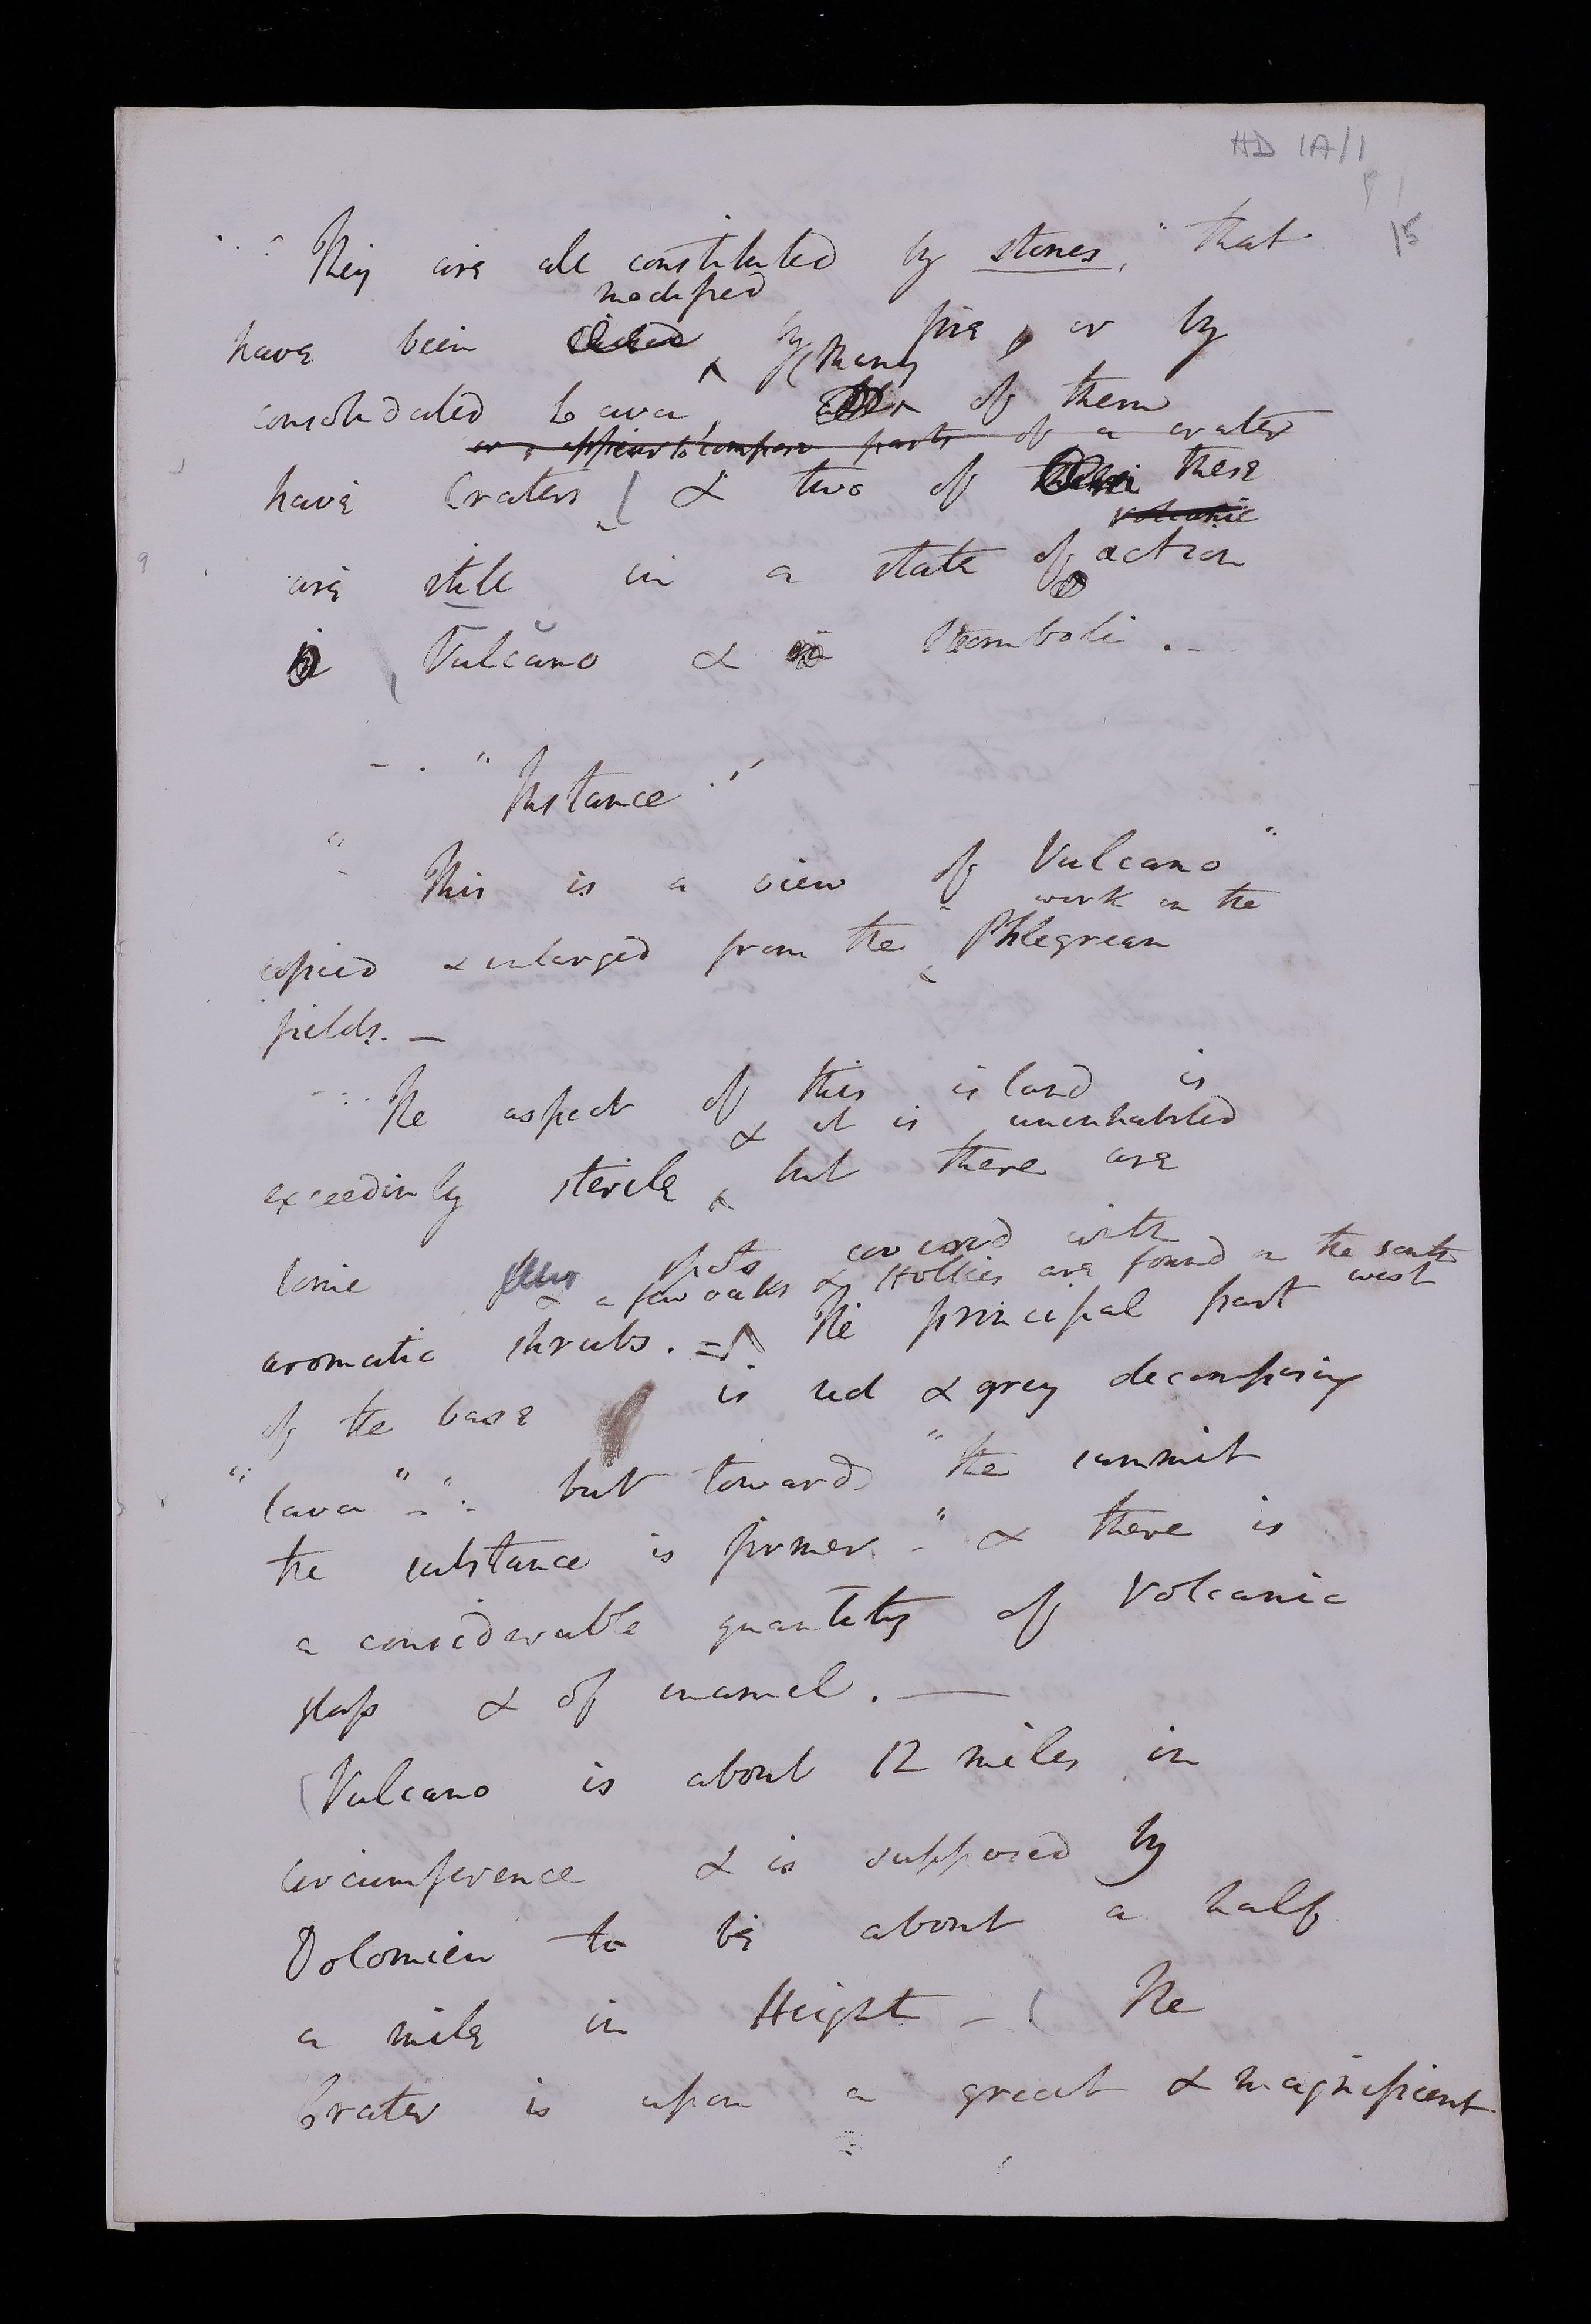 HD 1A/1
15
They are all constituted by stones, " that
modified
have been by fire, or by
Many
consolidated Lava, of them
or appear to compose parts of a crater
have Craters ( & two of these
volcanic
are still in a state of action
Vulcano & Stromboli. -
- . " Instance . "
" This is a view of Vulcano "
work on the
copied & enlarged from the Phlegrean
fields. -
The aspect of this island is
& it is uninhabited
exceedinly sterile but there are
some few spots covered with
& a few oaks & Hollies are found on the south
west
aromatic shrubs. = The principal part
of the base is red & grey decomposing
" lava " - " - but towards " the summit
the substance is firmer. - " & there is
a considerable quantity of Volcanic
glass & of enamel. —
( Vulcano is about 12 miles in
circumference & is supposed by
Dolomieu to be about a half
a mile in Height - ( The
Crater is upon a great & magnificent